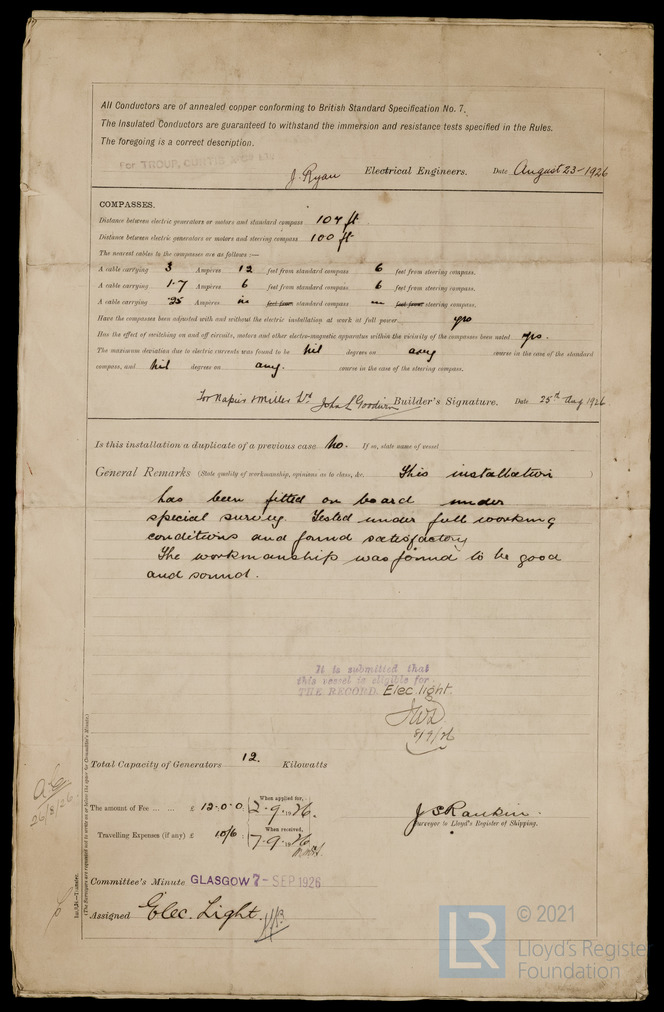 All Conductors are of annealed copper conforming to British Standard Specification No. 7.
The Insulated Conductors are guaranteed to withstand the immersion and resistance tests specified in the Rules.
The foregoing is a correct description.
For TROUP, CURTIS & CO LTD
J. Ryan Electrical Engineers. Date August 23-1926
COMPASSES.
Distance between electric generators or motors and standard compass 104 ft
Distance between electric generators or motors and steering compass 100 ft
The nearest cables to the compasses are as follows :—
A cable carrying 3 Amperes 12 feet from standard compass 6 feet from steering compass.
A cable carrying 1.7 Amperes 6 feet from standard compass 6 feet from steering compass.
A cable carrying .25 Amperes in feet from standard compass in feet from steering compass.
Have the compasses been adjusted with and without the electric installation at work at full power yes
Has the effect of switching on and off circuits, motors and other electro-magnetic apparatus within the vicinity of the compasses been noted yes.
The maximum deviation due to electric currents was found to be nil degrees on any course in the case of the standard
compass, and nil degrees on any. course in the case of the steering compass.
For Napier & Miller Ld John L Goodwin Builder's Signature. Date 25th Aug 1926
Is this installation a duplicate of a previous case No. If so, state name of vessel
General Remarks (State quality of workmanship, opinions as to class, &c. This installation )
has been fitted on board under
special survey. Tested under full working
conditions and found satisfactory
The workmanship was found to be good
and sound.
It is submitted that
this vessel is eligible for
THE RECORD. Elec. light.
8/9/26
Total Capacity of Generators 12. Kilowatts
26/8/26
The amount of Fee ... ... £ 12.0.0 When applied for, 2.9.1926.
Travelling Expenses (if any) £ 10/6 When received, 7.9.1926
J S Rankin.
Surveyor to Lloyd's Register of Shipping.
Committee's Minute GLASGOW 7 - SEP 1926
Assigned Elec. Light.
(The Surveyors are requested not to write on or below the space for Committee's Minute.)
LR
© 2021
Lloyd's Register
Foundation